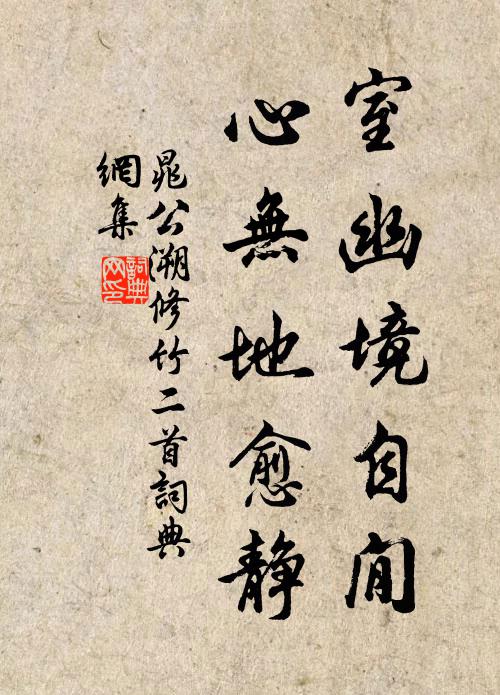 室幽境自閒
心無地愈静
晁公溯修竹二首詞典
網集
詞典网印